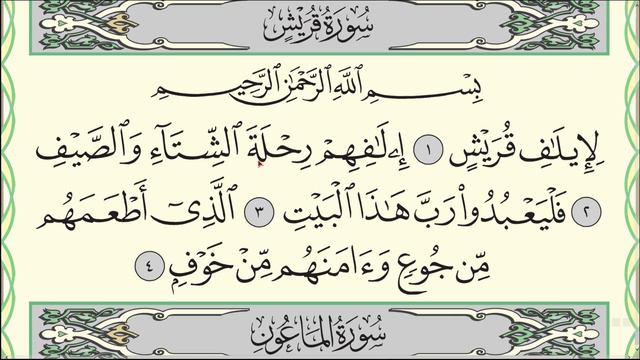 سُورَةُ قُرَيْشٍ
بِسْمِ ٱللَّهِ ٱلرَّحْمَٰنِ ٱلرَّحِيمِ
لِإِيلَٰفِ قُرَيْشٍ ١ إِۦلَٰفِهِمْ رِحْلَةَ ٱلشِّتَآءِ وَٱلصَّيْفِ
٢ فَلْيَعْبُدُوا۟ رَبَّ هَٰذَا ٱلْبَيْتِ ٣ ٱلَّذِىٓ أَطْعَمَهُم
مِّن جُوعٍ وَءَامَنَهُم مِّنْ خَوْفٍۭ ٤
سُورَةُ المَاعُونِ